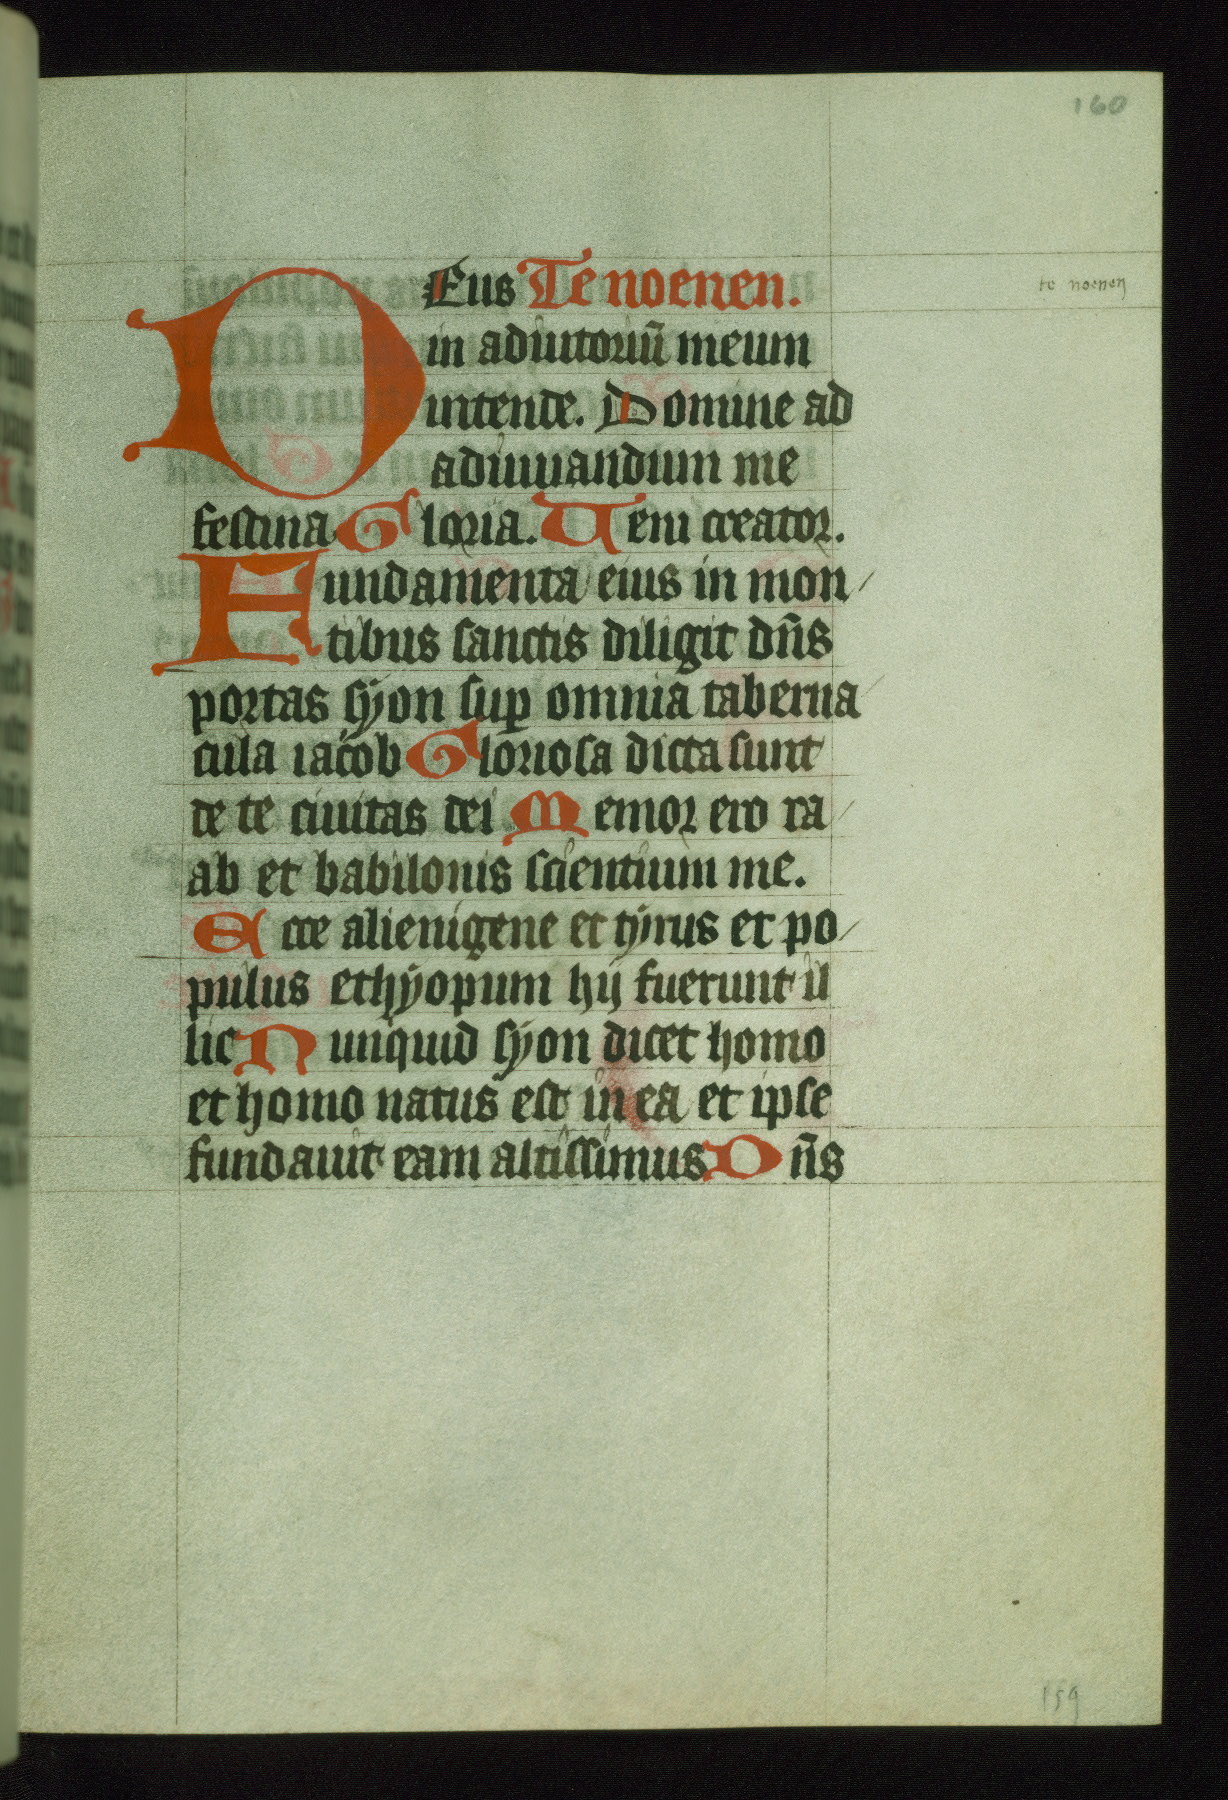 160
DEus Te noenen.
te noenen
in adiutoriū meum
intende. Domine ad
adiuuandum me
festina Gloria. Ueni creator.
Fundamenta eius in mon
tibus sanctis diligit dn̄s
portas syon sup omnia taberna
cula iacob Gloriosa dicta sunt
de te ciuitas dei Memor ero ra
ab et babilonis scientium me.
Ecce alienigene et tyrus et po
pulus ethyopum hij fuerunt il
lic Nunquid syon dicet homo
et homo natus est in ea et ipse
fundauit eam altissimus Dn̄s
159